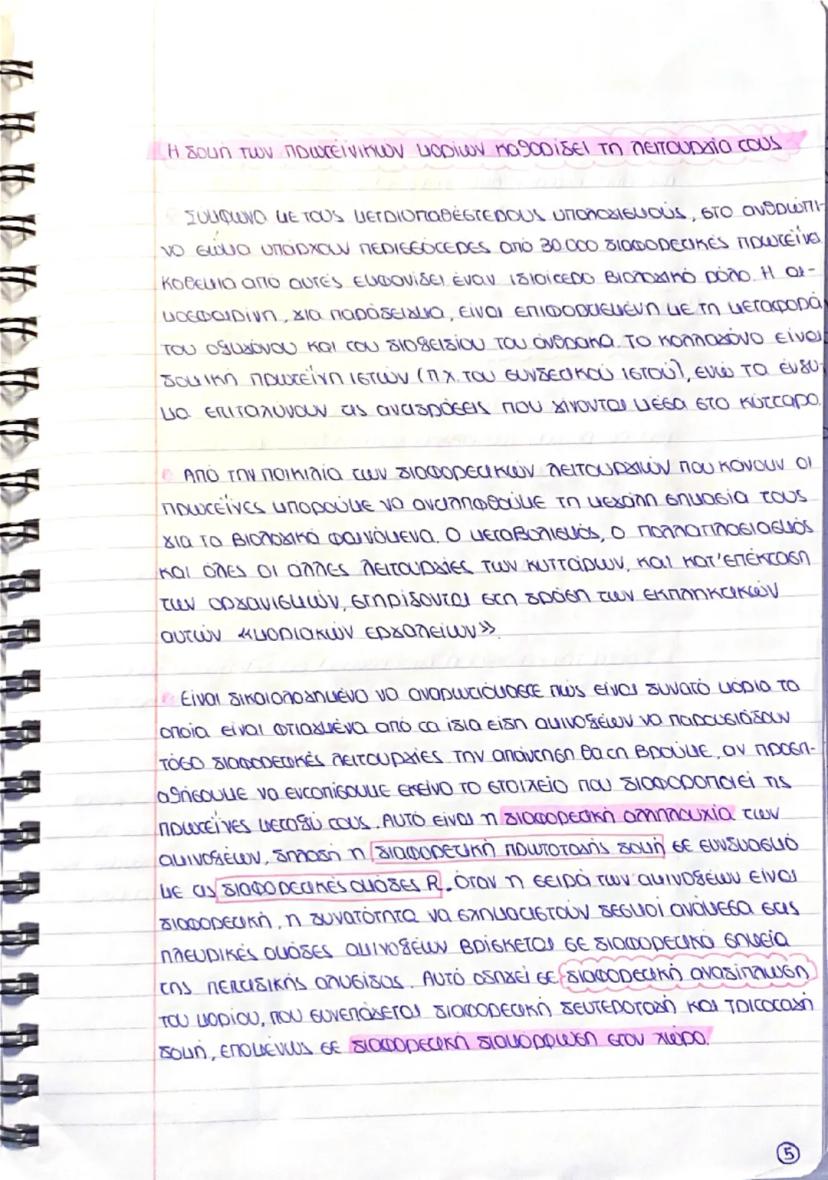 Η δομή των πρωτεϊνικών μορίων καθορίζει τη λειτουργία τους
Σύμφωνα με τους μετριοπαθέστερους υπολογισμούς, στο ανθρώπι-
νο σώμα υπάρχουν περισσότερες από 30.000 διαφορετικές πρωτεΐνες
Καθεμιά από αυτές εμφανίζει έναν ιδιαίτερο βιολογικό ρόλο. Η αι-
μοσφαιρίνη, για παράδειγμα, είναι επιφορτισμένη με τη μεταφορά
του οξυγόνου και του διοξειδίου του άνθρακα. Το κολλαγόνο είναι
δομική πρωτεΐνη ιστών (π.χ. του συνδετικού ιστού), ενώ τα ένζυ-
μα επιταχύνουν τις αντιδράσεις που γίνονται μέσα στο κύτταρο.
Από την ποικιλία των διαφορετικών λειτουργιών που κάνουν οι
πρωτεΐνες μπορούμε να αντιληφθούμε τη μεγάλη σημασία τους
για τα βιολογικά φαινόμενα. Ο μεταβολισμός, ο πολλαπλασιασμός
και όλες οι άλλες λειτουργίες των κυττάρων, και κατ' επέκταση
των οργανισμών, στηρίζονται στη δράση των εκπληκτικών
αυτών «μοριακών εργαλείων».
Είναι δικαιολογημένο να αναρωτιόμαστε πώς είναι δυνατό μόρια τα
οποία είναι φτιαγμένα από τα ίδια είδη αμινοξέων να παρουσιάζουν
τόσο διαφορετικές λειτουργίες. Την απάντηση θα τη βρούμε, αν προσπ-
αθήσουμε να εντοπίσουμε εκείνο το στοιχείο που διαφοροποιεί τις
πρωτεΐνες μεταξύ τους. Αυτό είναι η διαφορετική αλληλουχία των
αμινοξέων, δηλαδή η διαφορετική πρωτοταγής δομή σε συνδυασμό
με τις διαφορετικές ομάδες R. Όταν η σειρά των αμινοξέων είναι
διαφορετική, η δυνατότητα να σχηματιστούν δεσμοί ανάμεσα στις
πλευρικές ομάδες αμινοξέων βρίσκεται σε διαφορετικά σημεία
της πεπτιδικής αλυσίδας. Αυτό οδηγεί σε διαφορετική αναδίπλωση
του μορίου, που συνεπάγεται διαφορετική δευτεροταγή και τριτοταγή
δομή, επομένως σε διαφορετική διαμόρφωση στον χώρο.
5